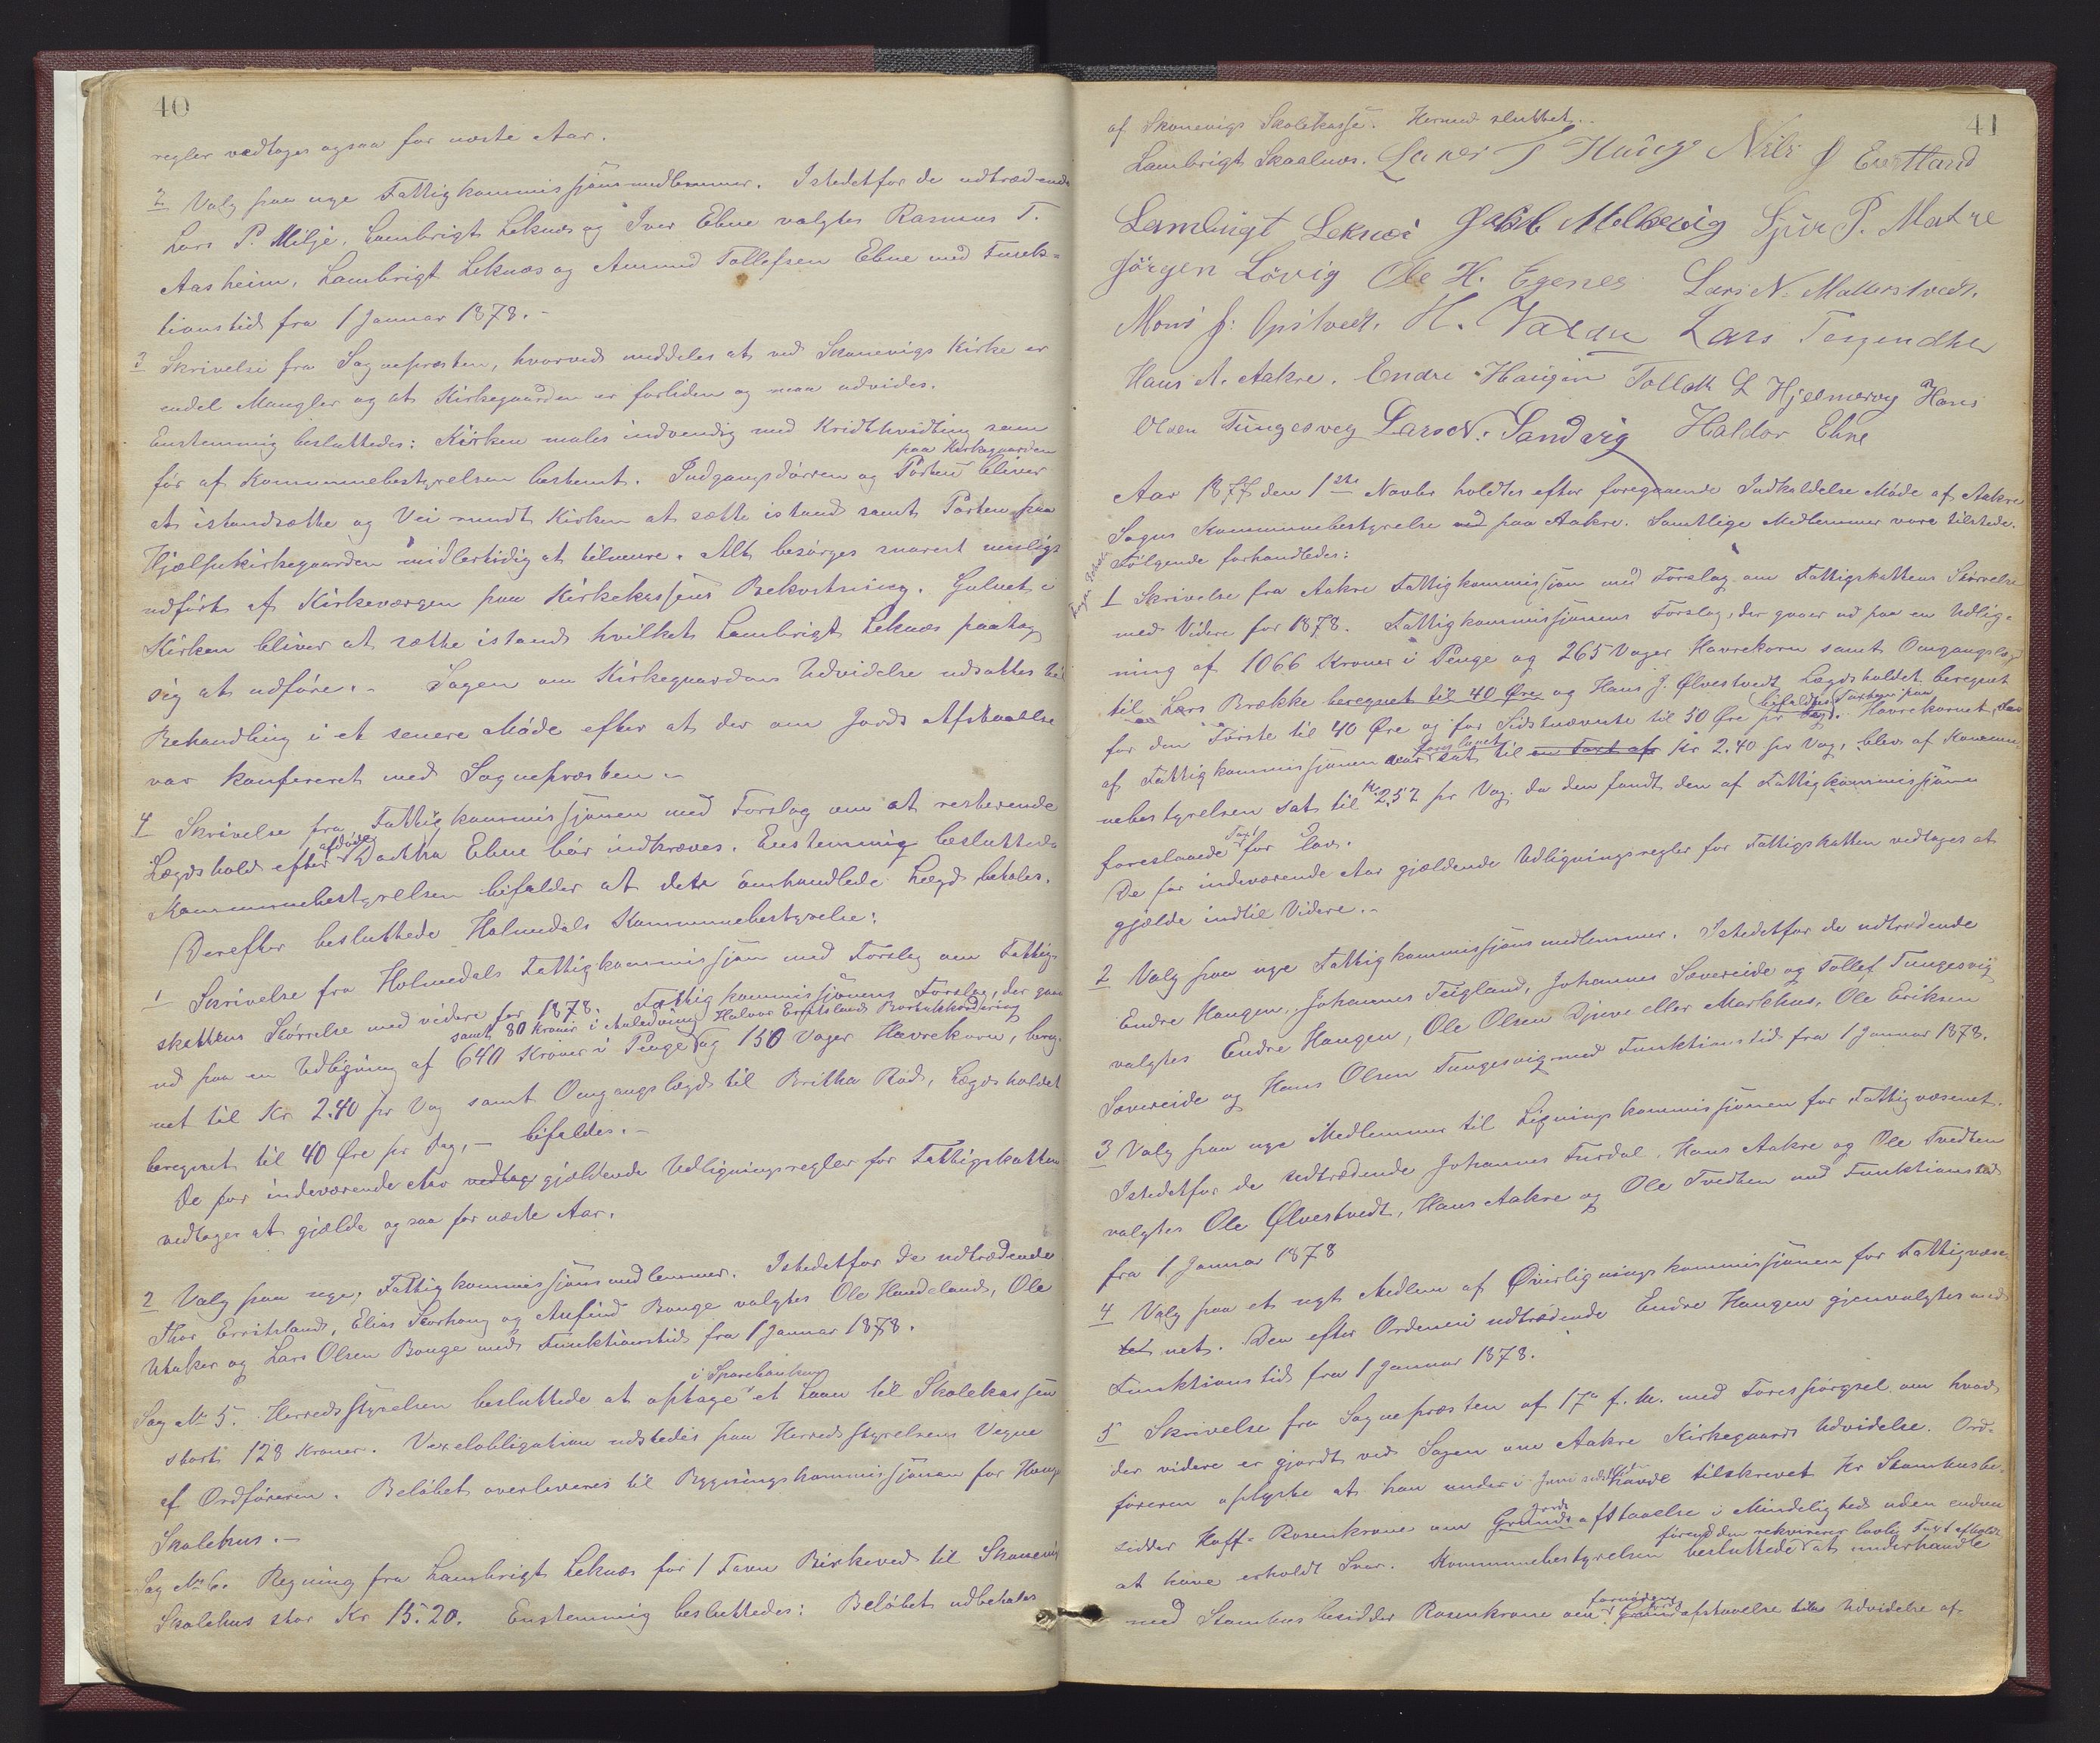 40
regler vedtoges ogsaa for næste Aar.
2 Valg paa nye Fattigkommissjonsmedlemmer. Istedetfor de udtrædende
Lars P. Milje, Lambrigt Leknes og Iver Ebne valgtes Rasmus T.
Aasheim, Lambrigt Leknæs og Amund Tollefsen Ebne med Funk-
tionstid fra 1 Januar 1878.-
3 Skrivelse fra Sognepræsten, hvorved meddeles at ved Skonevigs Kirke er
endel Mangler og at Kirkegaarden er forliden og maa udvides.
Enstemmig besluttedes: Kirken males indvendig med Kridthvidting som
paa Kirkegaarden
før af Kommunebestyrelsen bestemt. Indgangsdørren og Porten bliver
at istandsætte og Vei rundt Kirken at sætte istand samt Porten paa
Hjælpekirkegaarden midlertidig at tilmure. Alt besørges snarest muligt
udført af Kirkeværgen paa Kirkekassens Bekostning. Gulvet i
Kirken bliver at sætte istand hvilket Lambrigt Leknæs paatog
sig at udføre.- Sagen om Kirkegaardens Udvidelse udsattes til
Behandling i et senere Møde efter at der om Jords Afstaaelse
var konfereret med Sognepræsten.-
4 Skrivelse fra Fattigkommissjonen med Forslag om at resterende
afdøde
Lægdshold efter Dorthea Ebne bør indkræves. Enstemmig besluttedes
Kommunebestyrelsen bifalder at det omhandlede Lægd betales.
Derefter besluttede Holmedals Kommunebestyrelse:
1 Skrivelse fra Holmedals Fattigkommissjon med Forslag om Fattig-
skattens Størrelse med videre for 1878. Fattigkommissjonens Forslag, der gaar
samt 80 Kroner i Anledning Halvor Erritslands Bortakkordering
ud paa en Udligning af 640 Kroner i Penge og 150 Voger Havrekorn, bereg-
net til Kr 2.40 pr Vog samt Omgangslægd til Britha Rød, Lægdsholdet
beregnet til 40 Øre pr Dag, - bifaldes.-
De for indeværende Aar vedtag gjældende Udligningsregler for Fattigskatten
vedtoges at gjælde ogsaa for næste Aar.
2 Valg paa nye Fattigkommissjonsmedlemmer. Istedetfor de udtrædende
Thor Erritsland, Elias Skorhaug og Anfind Bauge valgtes Ole Handeland, Ole
Utaker og Lars Olsen Bauge med Funktionstid fra 1 Januar 1878.
i Sparebanken
Sag No 5. Herredsstyrelsen besluttede at optage et Laan til Skolekassen
stort 128 Kroner. Vexelobligation udstedes paa Herredsstyrelsens Vegne
af Ordføreren. Beløbet overleveres til Bygningskommissjonen for Hauge
Skolehus.-
Sag No 6. Regning fra Lambrigt Leknæs for 1 Favn Birkeved til Skonevig
Skolehus stor Kr 15.20. Enstemmig besluttedes: Beløbet udbetales
41
af Skonevigs Skolekasse. Hermed sluttet.
Lambrigt Skaalnes. Haug Nils J Ersland
Lambrigt Leknes Jakob Molkevig Sjur P. Matre
Jörgen Lövig Ole H. Egenes Lars N. Mallerstvedt.
Mons J. Opstvedt. H. Valen Lars Teigendhl
Hans A. Aakre. Endre Haugen Tollak L Hjelmervig Hans
Olsen Tungesvog Lars N. Sandvig Haldor Ebne
Aar 1877 den 1ste Novbr holdtes efter foregaaende Indkaldelse Møde af Aakre
Sogns Kommunebestyrelse ved paa Aakre. Samtlige Medlemmer vare tilstede.
Følgende forhandledes:
1 Skrivelse fra Aakre Fattigkommissjon med Forslag om Fattigskattens Størrelse
med Videre for 1878. Fattigkommissjonens Forslag, der gaaer ud paa en Udlig-
ning af 1066 Kroner i Penge og 265 Voger Havrekorn samt Omgangslægd
til Lars Brække beregnet til 40 Øre og Hans J. Ølvestvedt, Lægdsholdet beregnet
bifaldtes Taxten paa
for den Første til 40 Øre og for Sidstnævnte til 50 Øre pr Dag. Havrekornet, der
foreslaaet
af Fattigkommissjonen var sat til en Taxt af Kr 2.40 pr Vog, blev af Kommu-
nebestyrelsen sat til Kr 2.52 pr Vog. da den fandt den af Fattigkommissjonen
Taxt
foreslaaede for lav.
De for indeværende Aar gjældende Udligningsregler for Fattigskatten vedtoges at
gjælde indtil Videre.-
2 Valg paa nye Fattigkommissjonsmedlemmer. Istedetfor de udtrædende
Endre Haugen, Johannes Teigland, Johannes Sævereide og Tollef Tungesvig
valgtes Endre Haugen, Ole Olsen Djuve eller Markhus, Ole Eriksen
Sævereide og Hans Olsen Tungesvig med Funktionstid fra 1 Januar 1878.
3 Valg paa nye Medlemmer til Ligningskommissjonen for Fattigvæsenet.
Istedetfor de udtrædende Johannes Furdal, Hans Aakre og Ole Tvedten
valgtes Ole Ølvestvedt, Hans Aakre og Ole Tvedten med Funktionstid
fra 1 Januar 1878
4 Valg paa et nyt Medlem af Overligningskommissjonen for Fattigvæse-
tet net. Den efter Ordenen udtrædende Endre Haugen gjenvalgtes med
Funktionstid fra 1 Januar 1878.
5 Skrivelse fra Sognepræsten af 17de f. M. med Forespørgsel om hvad
der videre er gjordt ved Sagen om Aakre Kirkegaards Udvidelse. Ord-
føreren oplyste at han under i Juni sidst havde tilskrevet Hr Stamhusbe-
Jords
sidder Hoff-Rosenkrone om Grunds afstaaelse i Mindelighed uden endnu
førend den rekvirerer lovlig Taxt afholdt
at have erholdt Svar. Kommunebestyrelsen besluttede at underhandle
fornøden
med Stamhusbesidder Rosenkrone om Grundafstaaelse til Udvidelse af